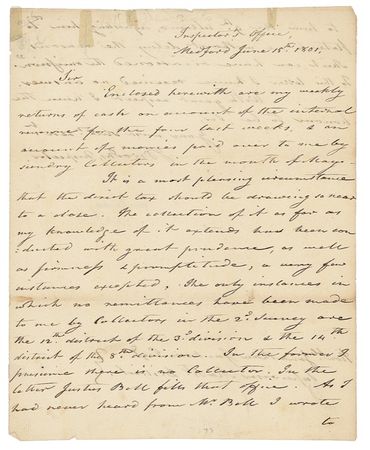 Inspector's Office,
Medford June 15th 1801,
Sir
Enclosed herewith are my weekly
returns of cash on account of the internal
revenue for the four last weeks, & an
account of monies paid over to me by
sundry Collectors in the month of May.
It is a most pleasing circumstance
that the direct tax should be drawing so near
to a close. The collection of it as far as
my knowledge of it extends has been con
ducted with great prudence, as well
as firmness & promptitude, a very few
instances excepted. The only instances in
which no remittances have been made
to me by Collectors in the 2d. Survey are
the 12th. district of the 3d. division & the 14th
district of the 5th division. In the former I
presume there is no Collector. In the
latter Justus Bell fills that office. As I
had never heard from Mr. Bell I wrote
to